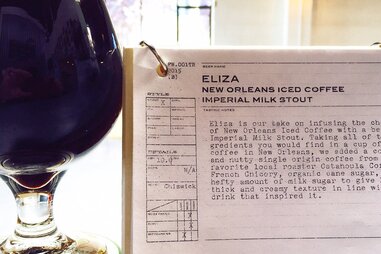 BEER NAME
ELIZA
NEW ORLEANS ICED COFFEE
IMPERIAL MILK STOUT
TASTING NOTES
Eliza is our take on infusing the ch
of New Orleans Iced Coffee with a be
Imperial Milk Stout. Taking all of t
gredients you would find in a cup of
coffee in New Orleans, we added a co
and nutty single origin coffee from
favorite local roaster Catahoula Co
French Chicory, organic cane sugar,
hefty amount of milk sugar to give
thick and creamy texture in line wi
drink that inspired it.
2015
STYLE
X
DETAILS
10.0
N/A
Chiswick